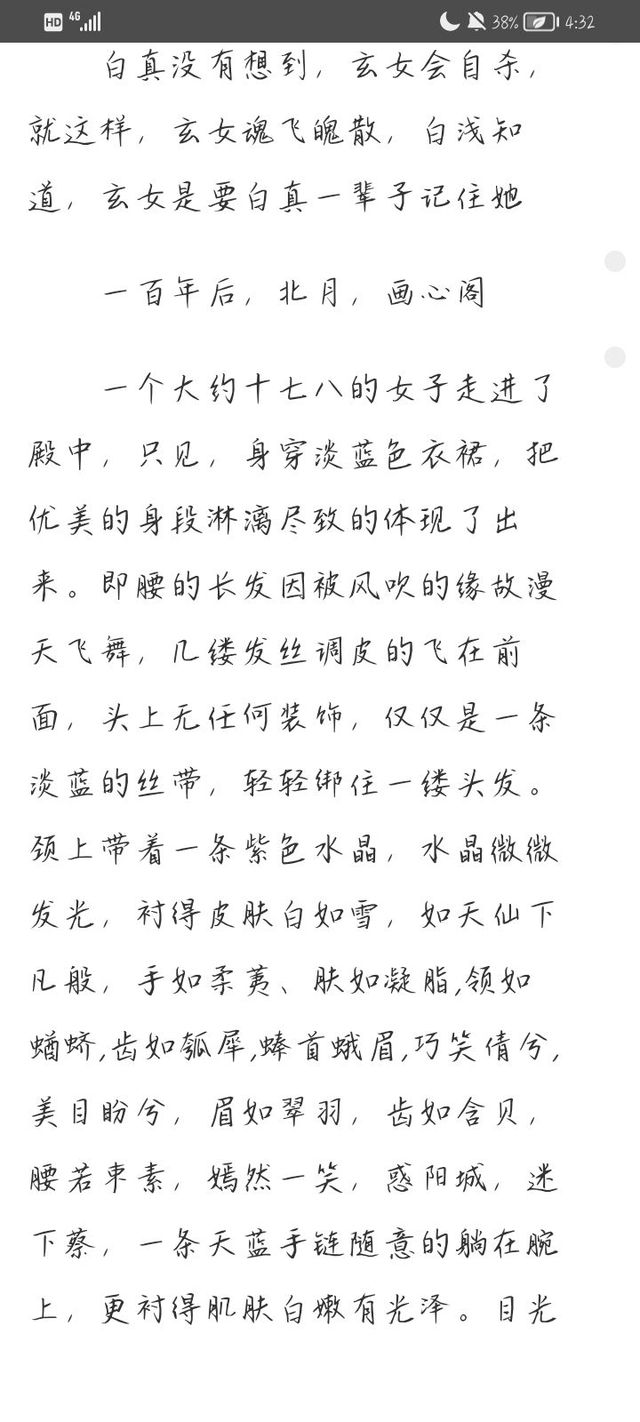 HD 4G 38% 4:32
白真没有想到，玄女会自杀，
就这样，玄女魂飞魄散，白浅知
道，玄女是要白真一辈子记住她
一百年后，北月，画心阁
一个大约十七八的女子走进了
殿中，只见，身穿淡蓝色衣裙，把
优美的身段淋漓尽致的体现了出
来。即腰的长发因被风吹的缘故漫
天飞舞，几缕发丝调皮的飞在前
面，头上无任何装饰，仅仅是一条
淡蓝的丝带，轻轻绑住一缕头发。
颈上带着一条紫色水晶，水晶微微
发光，衬得皮肤白如雪，如天仙下
凡般，手如柔荑、肤如凝脂,领如
蝤蛴,齿如瓠犀,螓首蛾眉,巧笑倩兮,
美目盼兮，眉如翠羽，齿如含贝，
腰若束素，嫣然一笑，惑阳城，迷
下蔡，一条天蓝手链随意的躺在腕
上，更衬得肌肤白嫩有光泽。目光